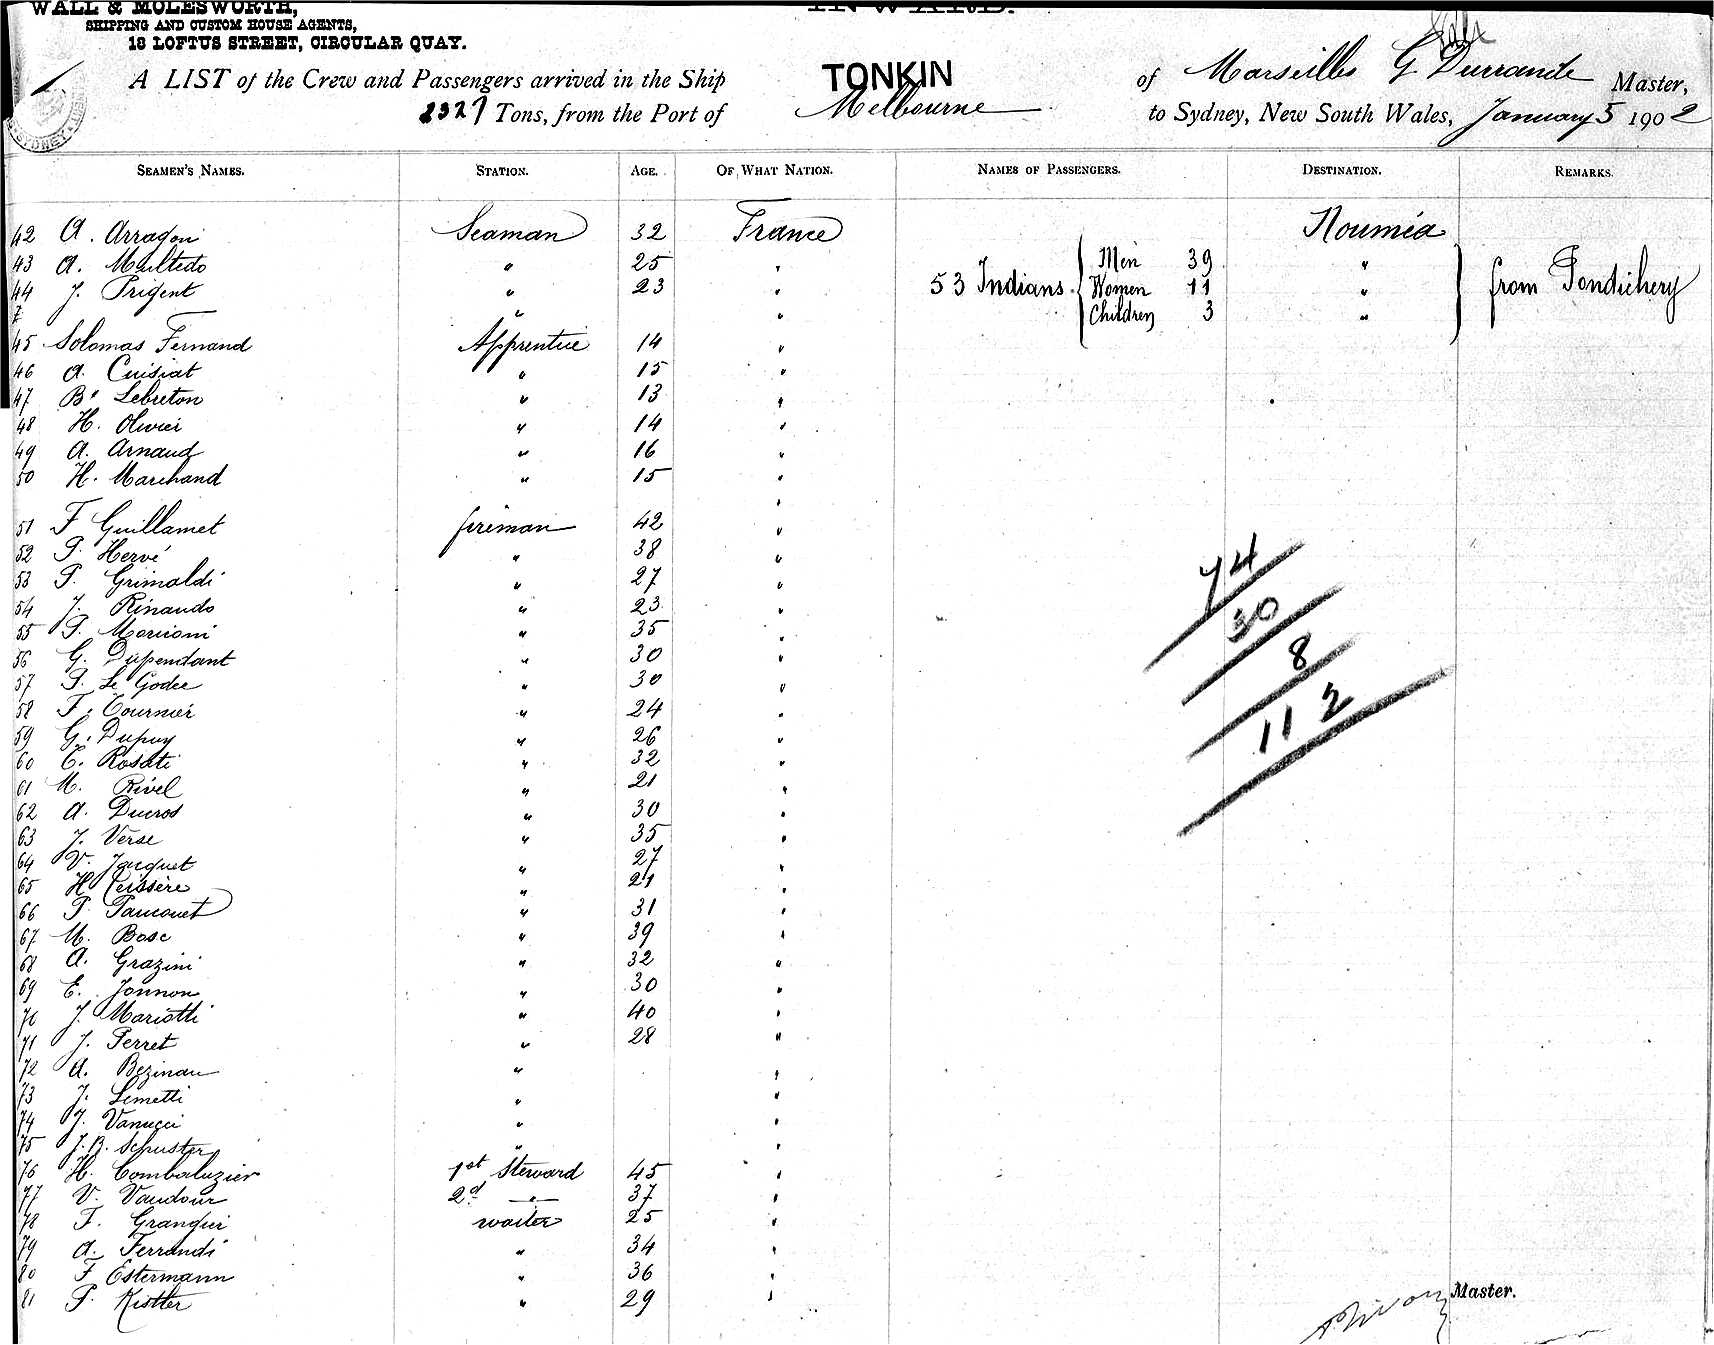 WALL & MOLESWORTH,
INWARD.
SHIPPING AND CUSTOM HOUSE AGENTS,
13 LOFTUS STREET, CIRCULAR QUAY.
A LIST of the Crew and Passengers arrived in the Ship TONKIN of Marseilles G. Durrande Master,
2327 Tons, from the Port of Melbourne to Sydney, New South Wales, January 5 1902
SEAMEN'S NAMES. STATION. AGE. OF WHAT NATION. NAMES OF PASSENGERS. DESTINATION. REMARKS.
42 A. Arragon Seaman 32 France Nouméa
43 A. Multedo " 25 " Men 39 "
44 J. Prigent " 23 " 53 Indians Women 11 " from Pondichery
" " Children 3 "
45 Solomas Fernand Apprentice 14 "
46 A. Cuisiat " 15 "
47 B. Lebreton " 13 "
48 H. Olivier " 14 "
49 A. Arnaud " 16 "
50 H. Marchand " 15 "
"
51 F Guillamet fireman 42 "
52 P. Hervé " 38 "
53 P. Grimaldi " 27 "
54 J. Rinaudo " 23 "
55 P. Morioni " 35 "
56 G. Dupendant " 30 "
57 P. Le Godec " 30 "
58 F. Tournier " 24 "
59 G. Dupuy " 26 "
60 E. Rosati " 32 "
61 M. Rivel " 21 "
62 A. Ducros " 30 "
63 J. Verse " 35 "
64 V. Jacquet " 27 "
65 H Teissère " 21 "
66 P. Pauconet " 31 "
67 M. Bosc " 39 "
68 A. Grazini " 32 "
69 E. Jonnon " 30 "
70 J. Mariotti " 40 "
71 J. Perret " 28 "
72 A. Bezinau " "
73 J. Limetti " "
74 J. Vanucci " "
75 J. B. Schuster " "
76 H. Combaluzier 1st Steward 45 "
77 V. Vaudour 2d " 37 "
78 F. Grangier waiter 25 "
79 A. Ferrandi " 34 "
80 F Estermann " 36 "
81 P. Kistler " 29 "
74
30
8
112
Master.